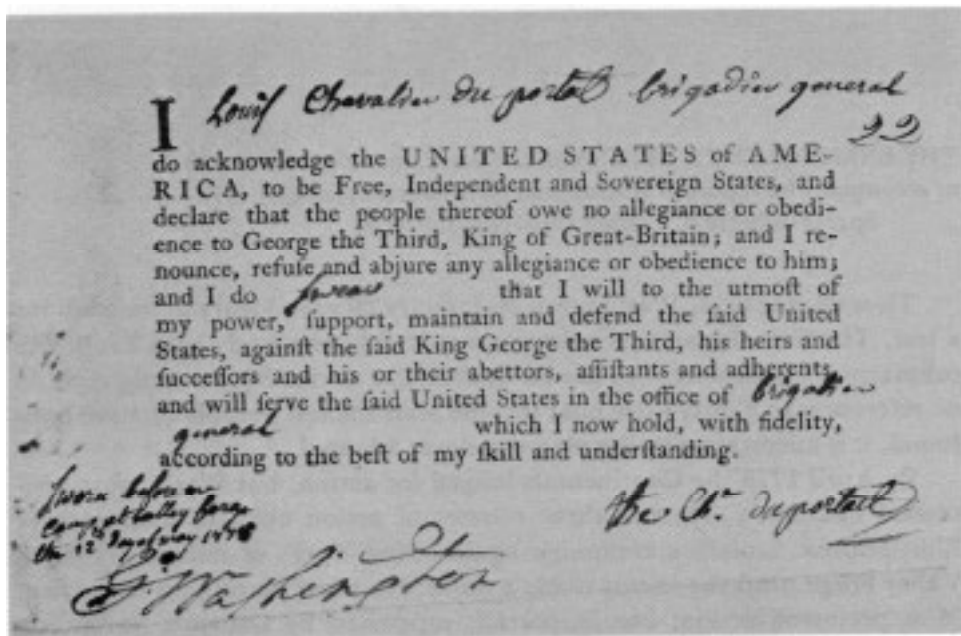 I Louis Chevalier du portal brigadier general
22
do acknowledge the UNITED STATES of AME-
RICA, to be Free, Independent and Sovereign States, and
declare that the people thereof owe no allegiance or obedi-
ence to George the Third, King of Great-Britain; and I re-
nounce, refuſe and abjure any allegiance or obedience to him;
and I do ſwear that I will to the utmoſt of
my power, ſupport, maintain and defend the ſaid United
States, againſt the ſaid King George the Third, his heirs and
ſucceſſors and his or their abettors, aſſiſtants and adherents,
and will ſerve the ſaid United States in the office of brigadier
general which I now hold, with fidelity,
according to the beſt of my ſkill and underſtanding.
Sworn before me
Camp at Valley Forge
the 12th day of May 1778
the Ch. duportail
G Washington